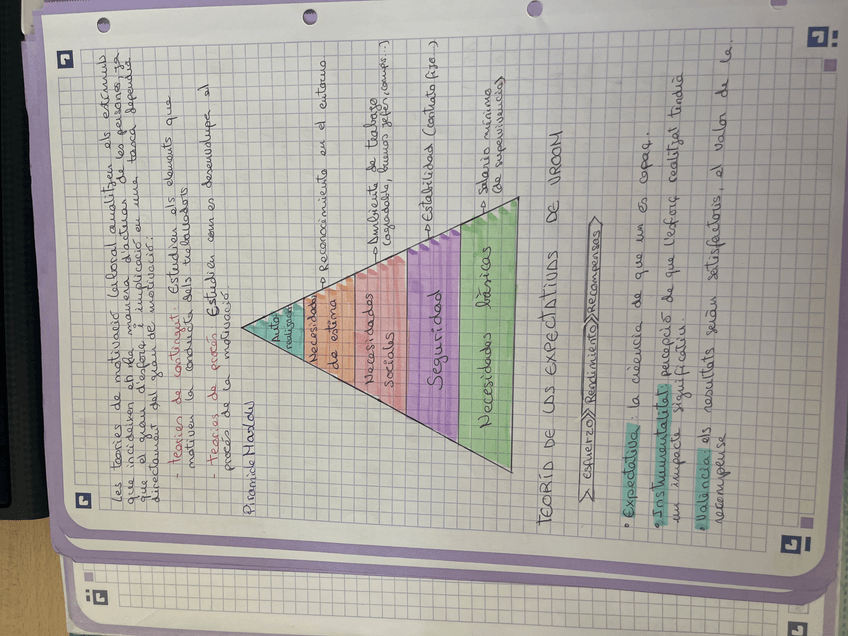 Les teories de motivació laboral analitzen els estímuls
que incideixen en la manera d'actuar de les persones, ja
que el grau d'esforç i implicació en una tasca dependrà
directament del grau de motivació:
- Teories de contingut: Estudien els elements que
motiven la conducta dels treballadors
- Teories de procés: Estudien com es desenvolupa el
procés de la motivació.
Piramide Maslow
Auto
realización
Necesidades
de estima
→ Reconocimiento en el entorno
Necesidades
sociales
→ Ambiente de trabajo
(agradable, buenos jefes, comps...)
Seguridad
→ Estabilidad (contrato fijo...)
Necesidades básicas
→ Salario mínimo
(de supervivencia)
TEORÍA DE LAS EXPECTATIVAS DE VROOM
> Esfuerzo >> Rendimiento >> Recompensas >
• Expectativa: la creencia de que un és capaç.
• Instrumentalitat: percepció de que l'esforç realitzat tindrà
un impacte significatiu.
• València: els resultats seràn satisfactoris, el valor de la
recompensa